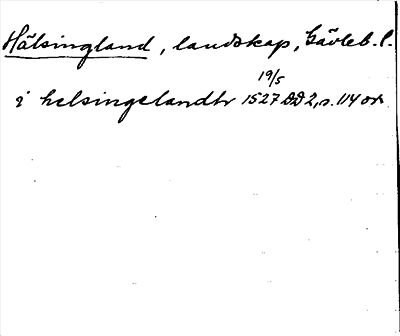 Hälsingland, landskap, Gävleb. l.
19/5
i helsingelandh 1527 DD 2, s. 114 or.